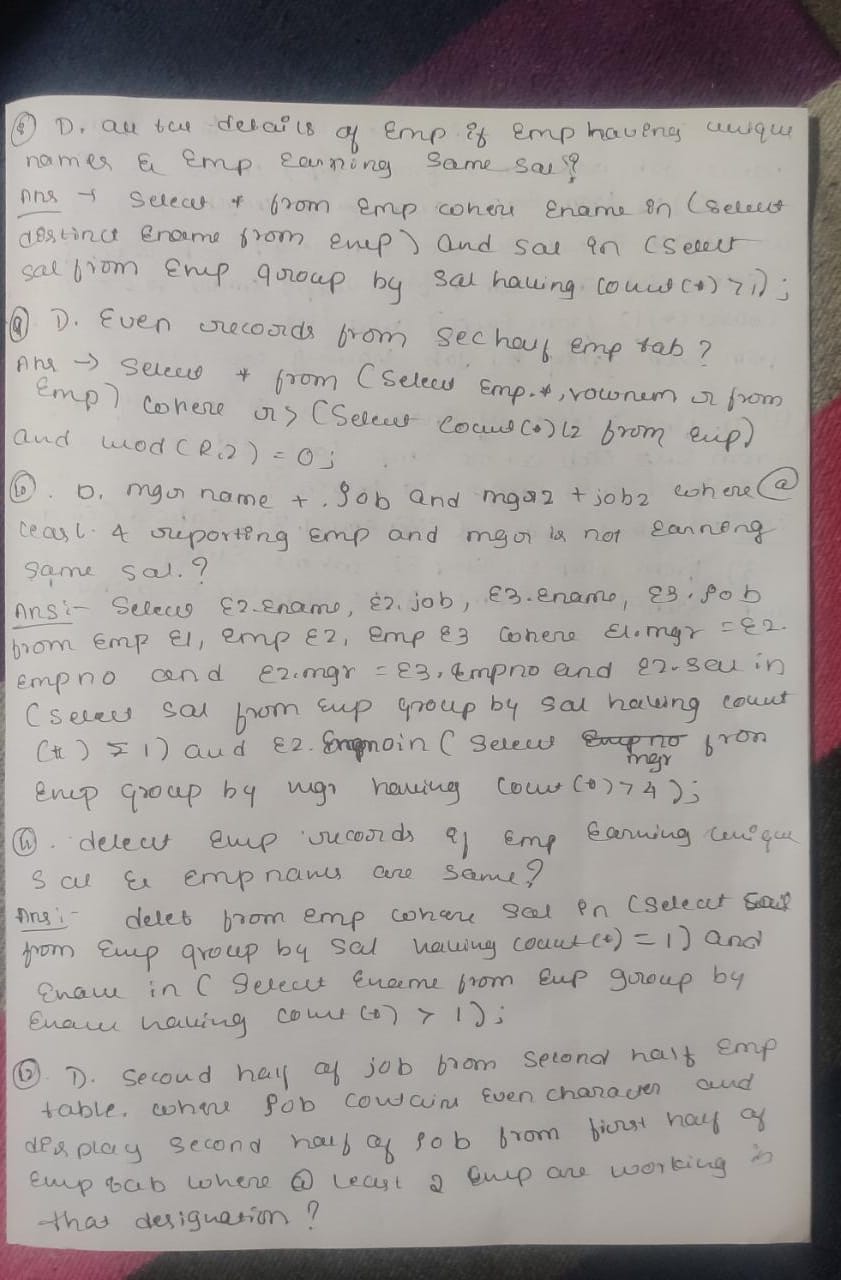 ⑧ D. all the details of Emp if Emp having unique
names & Emp Earning Same sal?
Ans → Select * from Emp where Ename in (Select
distinct Ename from emp) and sal in (Select
sal from Emp group by sal having count(*) >1);
⑨ D. Even records from sec half emp tab?
Ans → Select * from (Select Emp.*, rownum r from
Emp) where r> (Select count(*)/2 from emp)
and mod(R,2) = 0;
⑩. D. mgr name + job and mgr2 + job2 where @
least 4 reporting Emp and mgr is not Earning
same sal.?
Ans:- Select E2.Ename, E2.job, E3.Ename, E3.job
from Emp E1, emp E2, emp E3 where E1.mgr = E2.
empno and E2.mgr = E3.Empno and E2.sal in
(Select sal from Emp group by sal having count
(*) = 1) and E2. in (Select mgr from
Emp group by mgr having count(*)>4);
⑪. delect Emp records of Emp Earning unique
Sal & emp names are same?
Ans:- delet from emp where sal in (Select sal
from Emp group by sal having count(*) = 1) and
Ename in (Select Ename from Emp group by
Ename having count(*) > 1);
⑫. D. Second half of job from Second half Emp
table. where Job contains Even character and
display second half of job from first half of
Emp tab where @ least 2 Emp are working in
that designation?